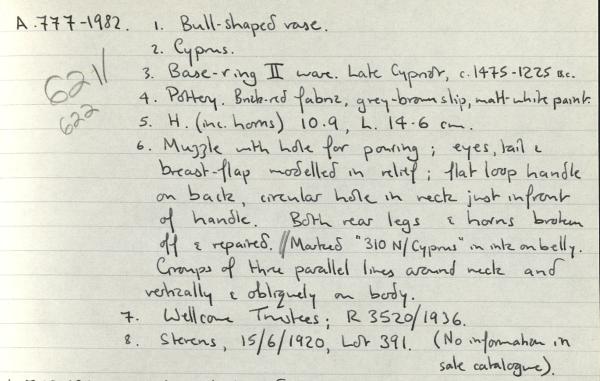 A.777-1982. 1. Bull-shaped vase.
2. Cyprus.
3. Base-ring II ware. Late Cypriot, c.1475-1225 B.C.
4. Pottery. Brick-red fabric, grey-brown slip, matt-white paint.
5. H. (inc. horns) 10.9, L. 14.6 cm.
6. Muzzle with hole for pouring; eyes, tail &
breast-flap modelled in relief; flat loop handle
on back, circular hole in neck just infront
of handle. Both rear legs & horns broken
off & repaired. // Marked "310 N/Cyprus" in ink on belly.
Groups of three parallel lines around neck and
vertically & obliquely on body.
7. Wellcome Trustees; R 3520/1936.
8. Stevens, 15/6/1920, Lot 391. (No information in
sale catalogue).
621
622